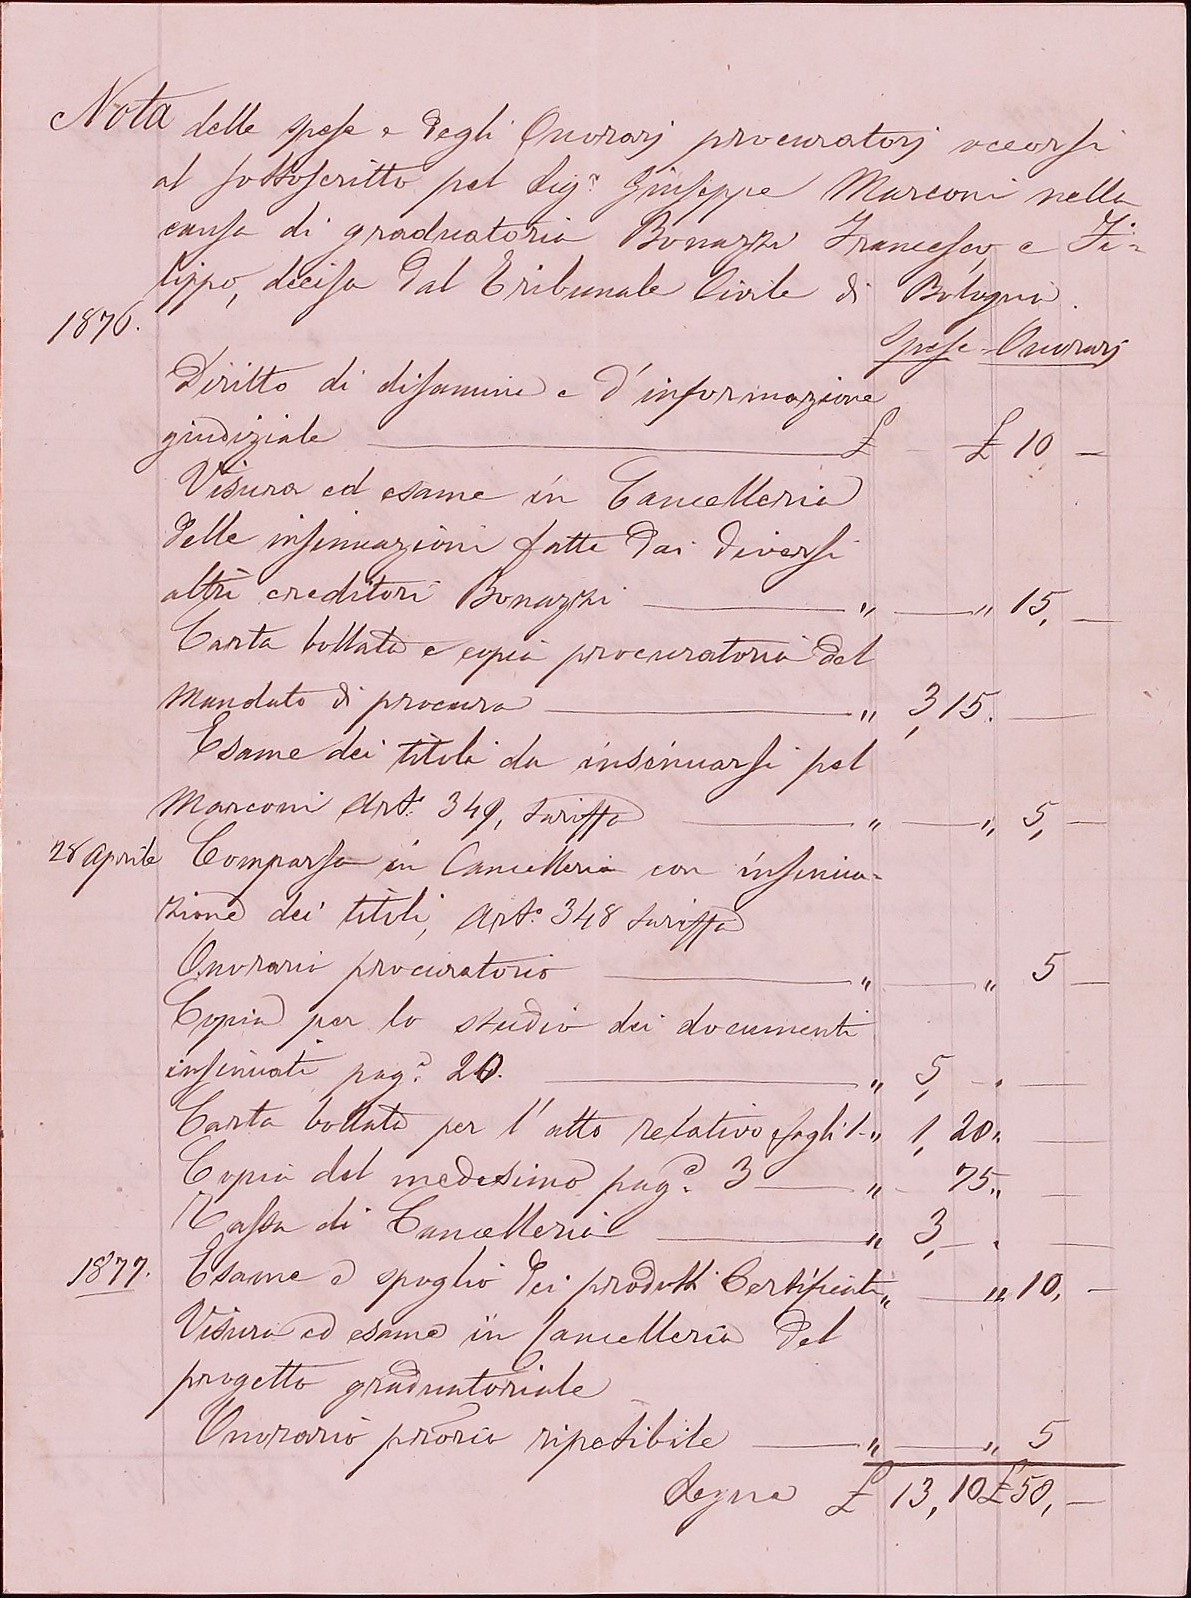 Nota delle spese e degli Onorarj procuratorj occorsi
al sottoscritto pel Sigr. Giuseppe Marconi nella
causa di graduatoria Bonazzi Francesco, e Fi=
lippo, decisa dal Tribunale Civile di Bologna.
1876.
Spese - Onorarj
Diritto di disamina e d'informazione
giudiziale £ - £ 10 -
Visura ed esame in Cancelleria
delle insinuazioni fatte dai diversi
altri creditori Bonazzi " - " 15, -
Carta bollata e copia procuratoria del
Mandato di procura " 3, 15. -
Esame dei titoli da insinuarsi pel
Marconi Art.° 349, tariffa " - " 5, -
28 Aprile Comparsa in Cancelleria con insinua=
zione dei titoli, Art.° 348 tariffa
Onorario procuratorio " - " 5 -
Copia per lo studio dei documenti
insinuati pag.e 20. " 5, - " -
Carta bollata per l'atto relativo fogli 1 - " 1, 20 " -
Copia del medesimo pag.e 3 - " - 75 " -
Tassa di Cancelleria " 3, - " -
1877. Esame e spoglio dei prodotti Certificati " - " 10, -
Visura ed esame in Cancelleria del
progetto graduatoriale
Onorario proprio ripetibile " - " 5
Segue £ 13, 10 £ 50, -